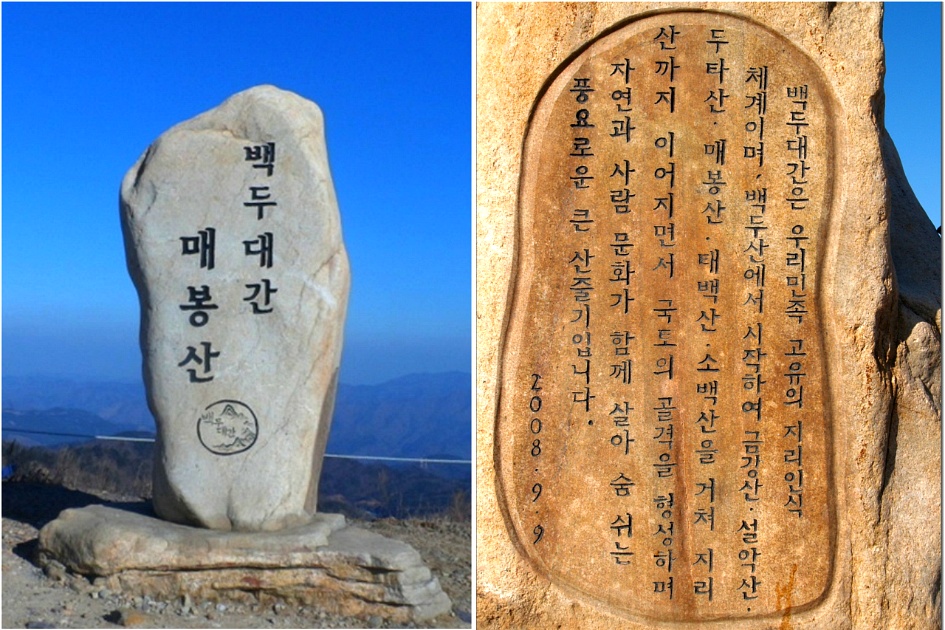 백두대간
매봉산
백두
대간
백두대간은 우리민족 고유의 지리인식
체계이며, 백두산에서 시작하여 금강산·설악산·
두타산·매봉산·태백산·소백산을 거쳐 지리
산까지 이어지면서 국토의 골격을 형성하며
자연과 사람 문화가 함께 살아 숨 쉬는
풍요로운 큰 산줄기입니다.
2008.9.9